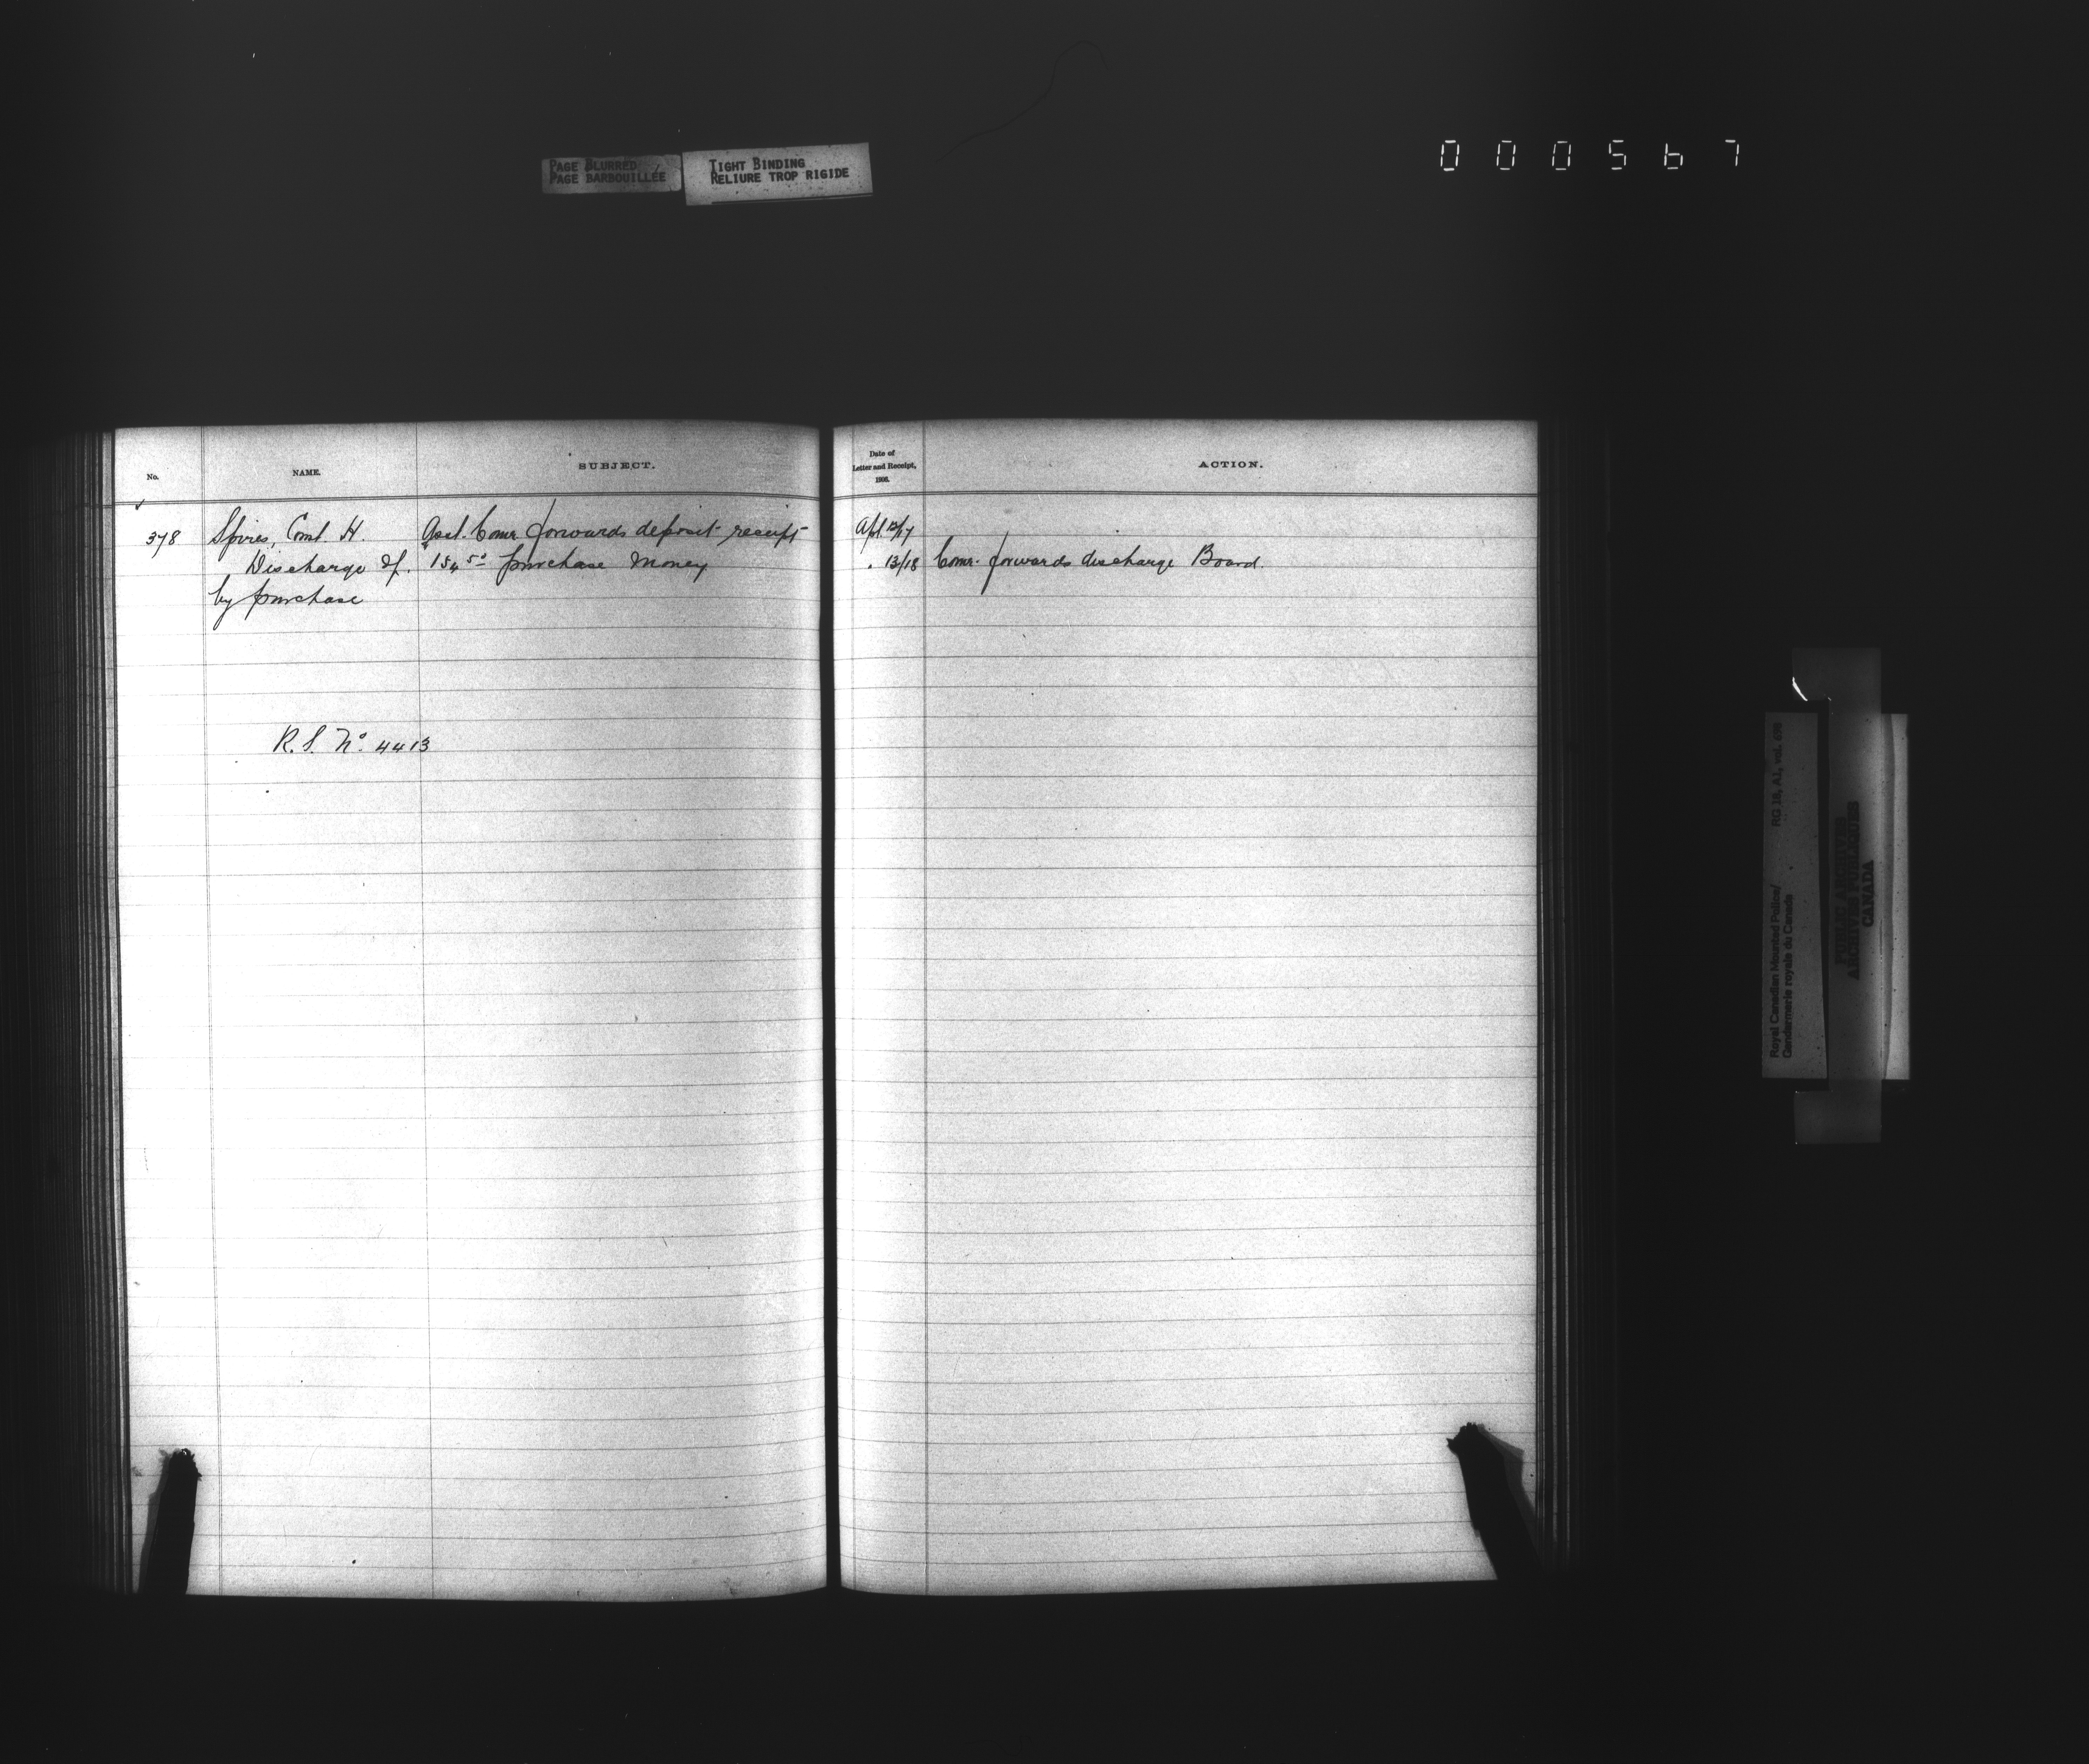 PAGE BLURRED
PAGE BARBOUILLÉE
TIGHT BINDING
RELIURE TROP RIGIDE
000567
No.
NAME.
SUBJECT.
Date of
Letter and Receipt,
ACTION.
378 Spires, Const. H. Asst. Comr. forwards deposit receipt Apl. 12/17
Discharge of. purchase money . 13/18 Comr. forwards discharge Board.
by purchase
R.S. No. 4413
Royal Canadian Mounted Police/ RG 18, A1, vol. 698
Gendarmerie royale du Canada
PUBLIC ARCHIVES
ARCHIVES PUBLIQUES
CANADA